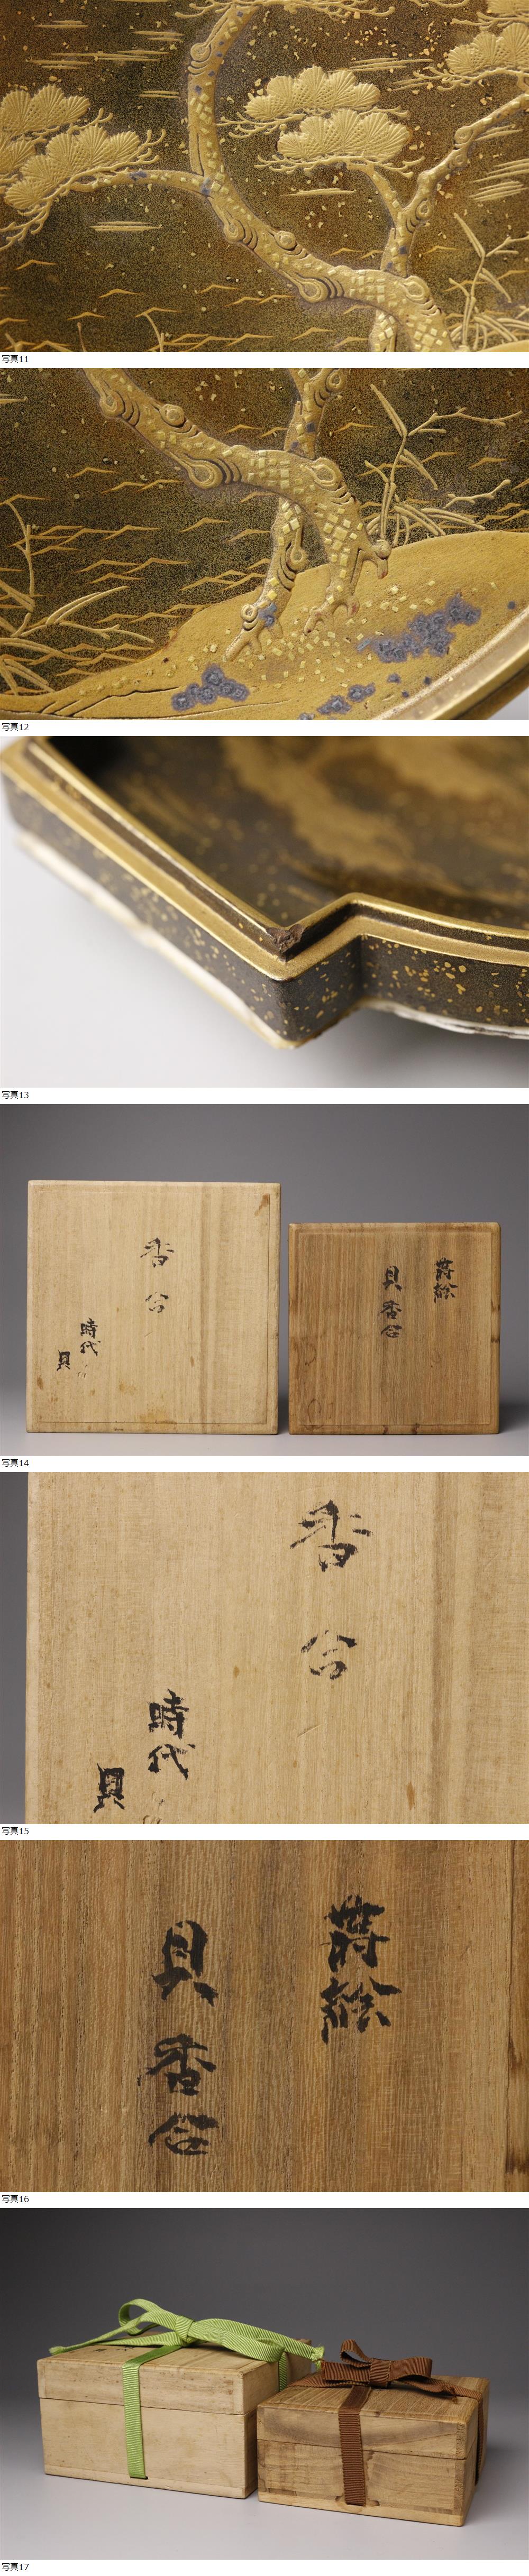 写真11
写真12
写真13
香合
時代
貝
蒔絵
貝香合
写真14
香合
時代
貝
写真15
蒔絵
貝香合
写真16
写真17